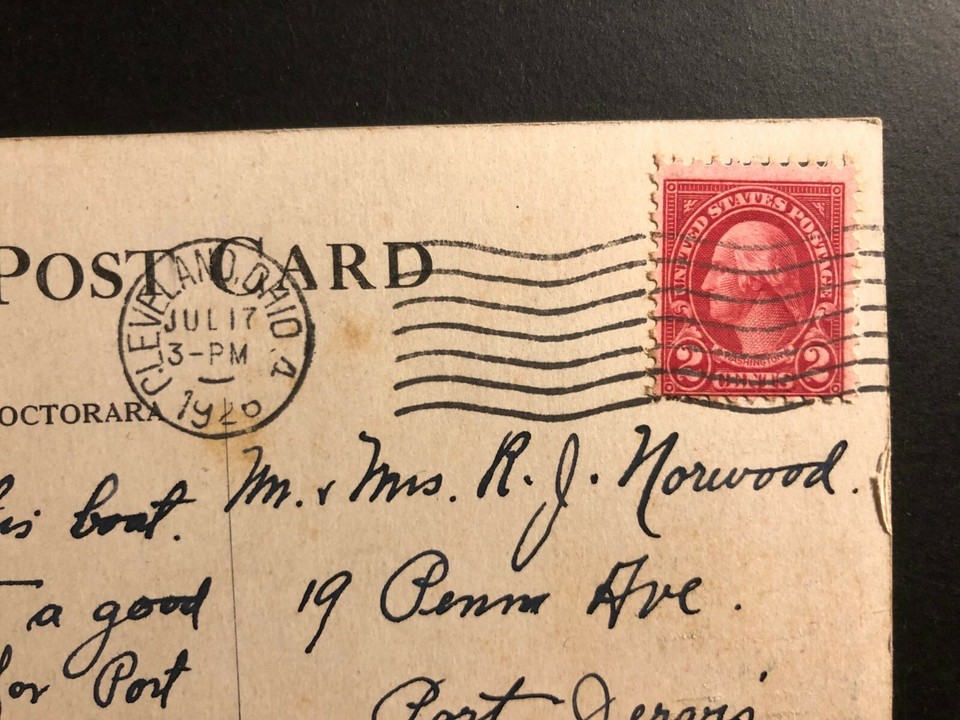 POST CARD
CLEVELAND, OHIO. 4
JUL 17
3-PM
192
UNITED STATES POSTAGE
WASHINGTON
2 CENTS 2
OCTORARA
boat.
a good
or Port
Mr. & Mrs. R. J. Norwood.
19 Penn Ave.
Port Jervis